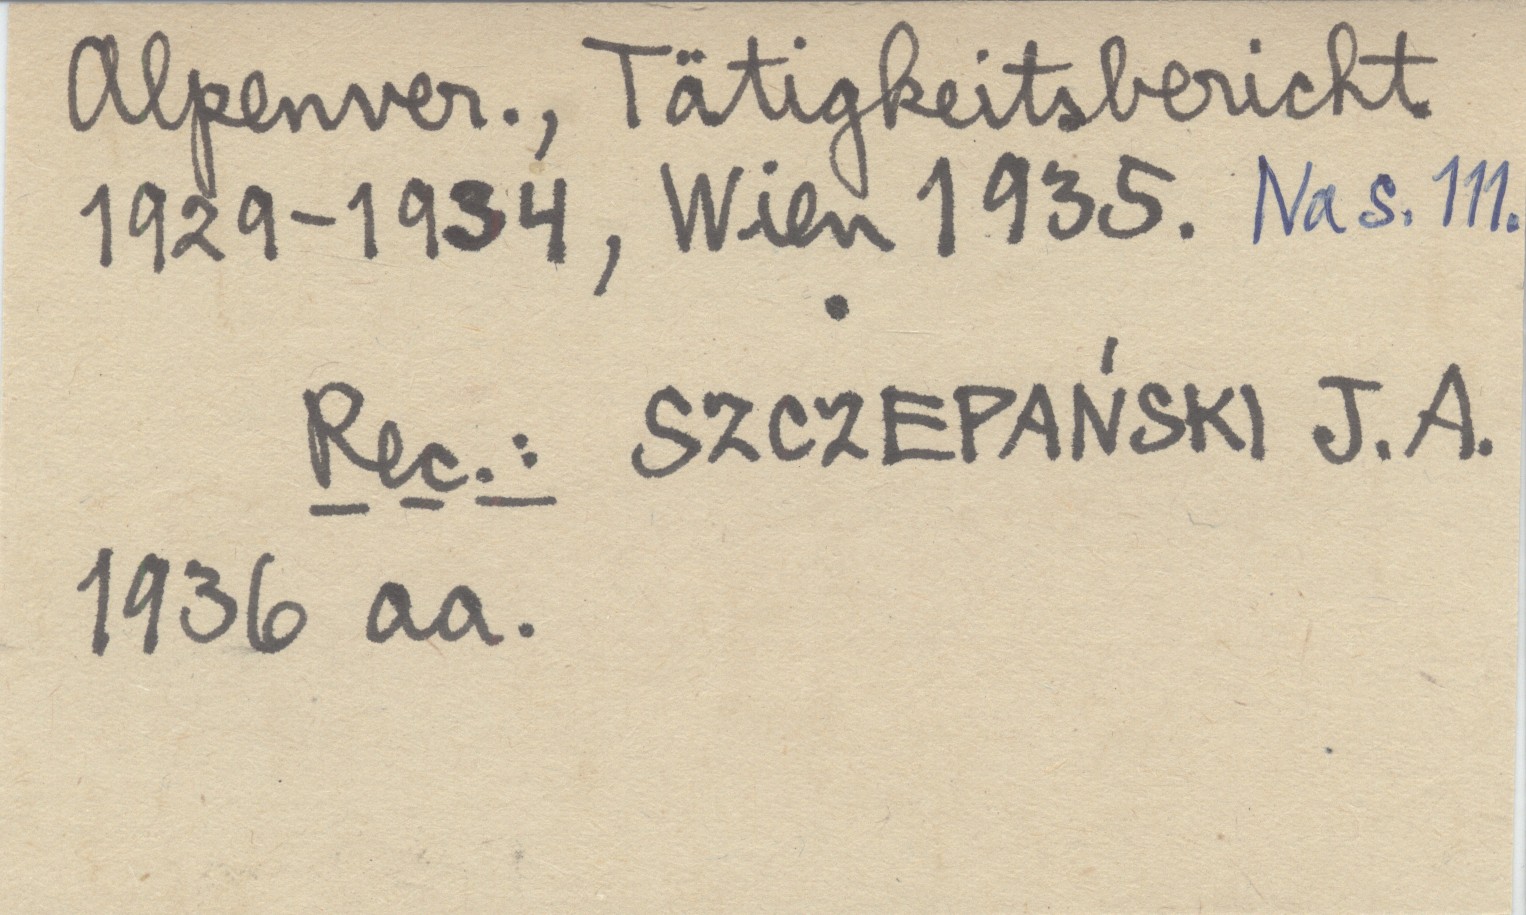 Alpenver., Tätigkeitsbericht
1929-1934, Wien 1935. Na s. 111.
Rec.: SZCZEPAŃSKI J.A.
1936 aa.